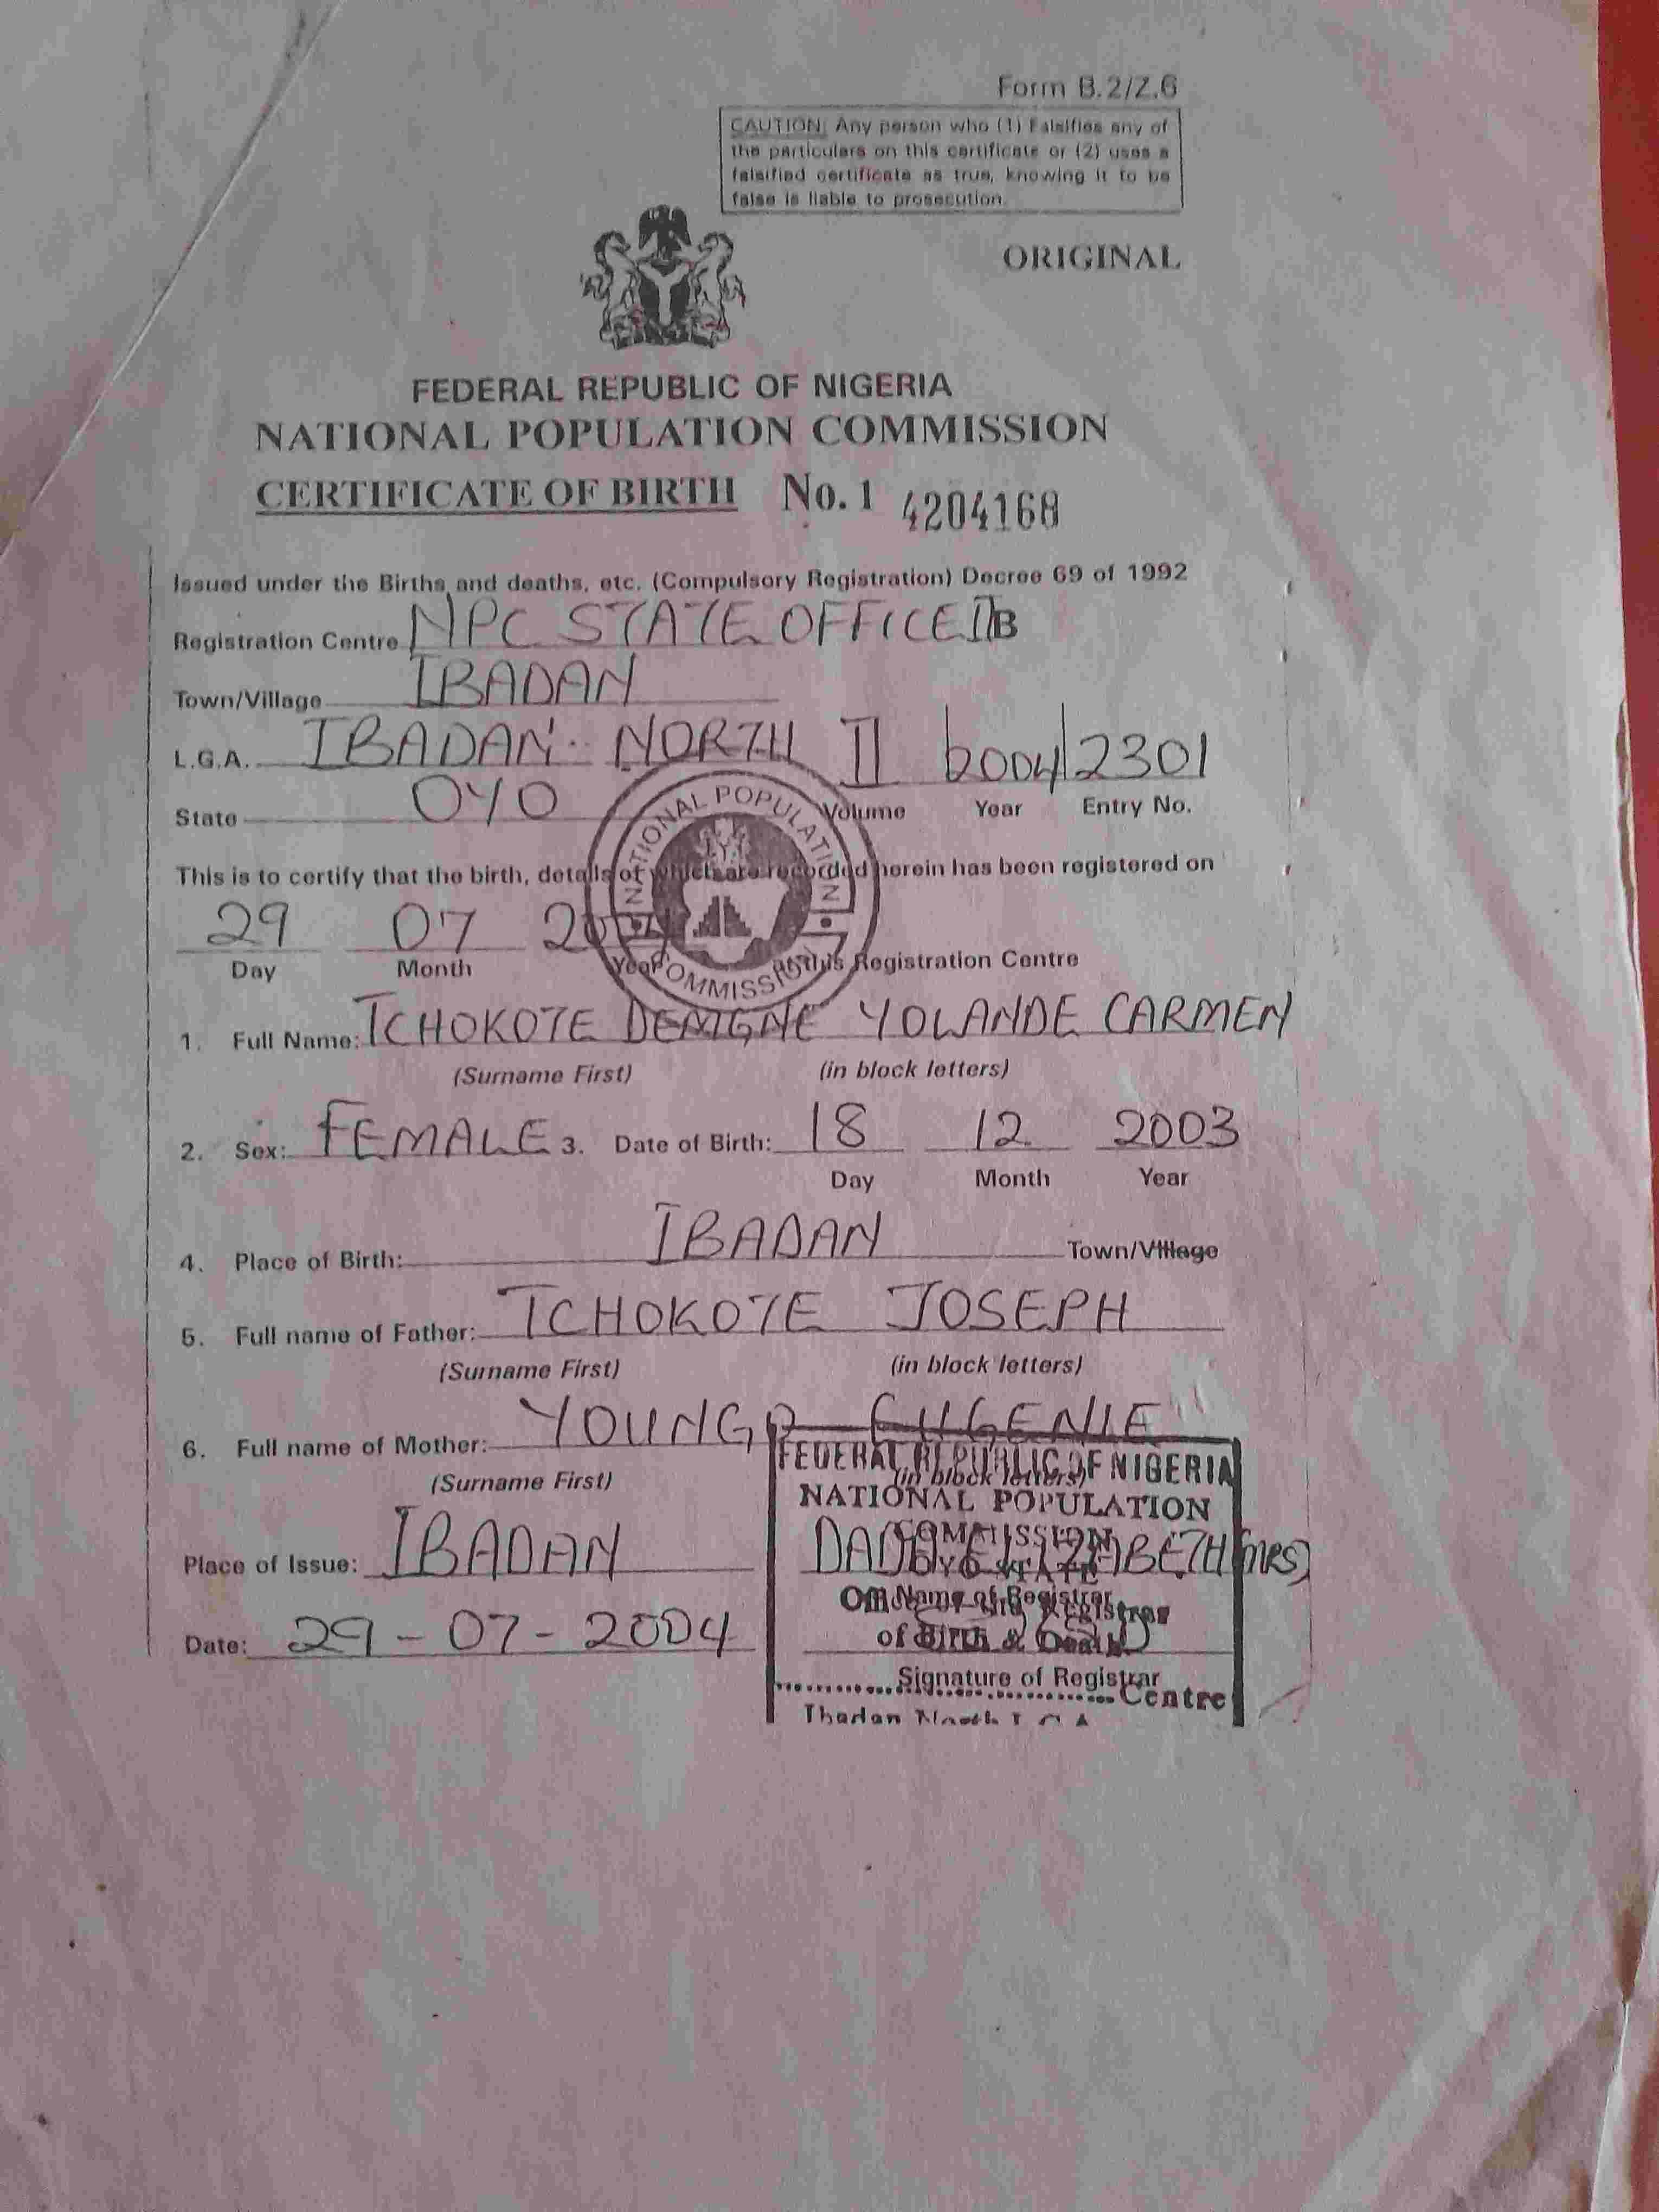 Form B.2/Z.6
CAUTION: Any person who (1) Falsifies any of
the particulars on this certificate or (2) uses a
falsified certificate as true, knowing it to be
false is liable to prosecution.
ORIGINAL
FEDERAL REPUBLIC OF NIGERIA
NATIONAL POPULATION COMMISSION
CERTIFICATE OF BIRTH No. 1 4204168
Issued under the Births and deaths, etc. (Compulsory Registration) Decree 69 of 1992
Registration Centre NPC STATE OFFICE IB
Town/Village IBADAN
L.G.A. IBADAN NORTH II 2004 2301
State OYO Volume Year Entry No.
NATIONAL POPULATION COMMISSION
This is to certify that the birth, details of which are recorded herein has been registered on
29 07
Day Month Year at this Registration Centre
1. Full Name: TCHOKOTE YOLANDE CARMEN
(Surname First) (in block letters)
2. Sex: FEMALE 3. Date of Birth: 18 12 2003
Day Month Year
4. Place of Birth: IBADAN Town/Village
5. Full name of Father: TCHOKOTE JOSEPH
(Surname First) (in block letters)
6. Full name of Mother: EUGENIE
(Surname First) (in block letters)
FEDERAL REPUBLIC OF NIGERIA
NATIONAL POPULATION
COMMISSION
OYO STATE
Place of Issue: IBADAN (MRS)
Name of Registrar
Registrar
of Birth & Death
Date: 29-07-2004
Signature of Registrar
Centre
Ibadan North L G A